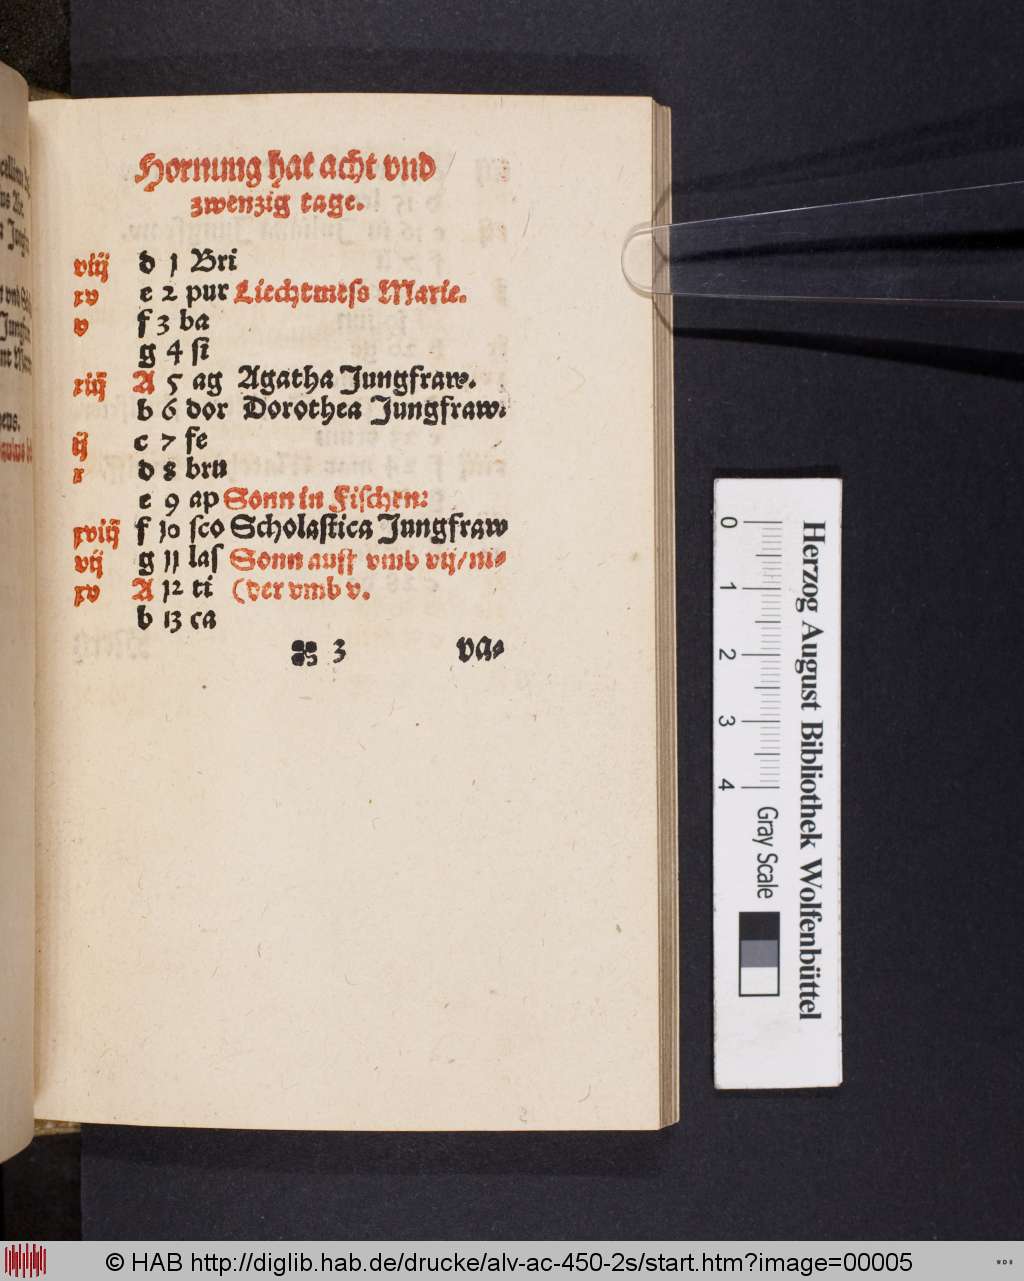 Hornung hat acht vnd
zwenzig tage.
viij d 1 Bri
xv e 2 pur Liechtmess Marie.
v f 3 ba
g 4 si
xiij A 5 ag Agatha Jungfraw.
b 6 dor Dorothea Jungfraw.
ij c 7 fe
x d 8 bru
e 9 ap Sonn in Fischen:
xviij f 10 sco Scholastica Jungfraw
vij g 11 las Sonn auff vmb vij/ ni⸗
xv A 12 ti (der vmb v.
b 13 ca
3 va⸗
Herzog August Bibliothek Wolfenbüttel
0 1 2 3 4 Gray Scale
© HAB http://diglib.hab.de/drucke/alv-ac-450-2s/start.htm?image=00005